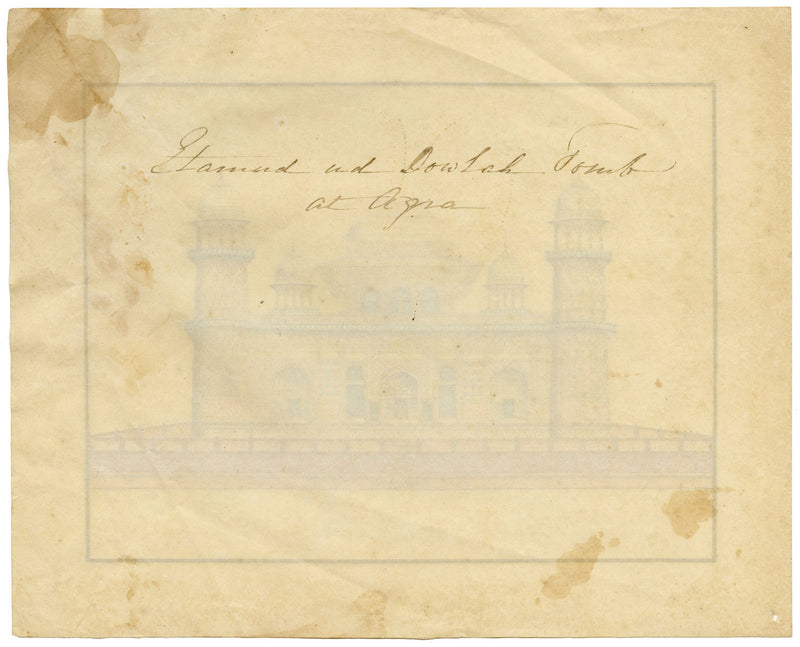 Etamud ud Dowlah Tomb
at Agra